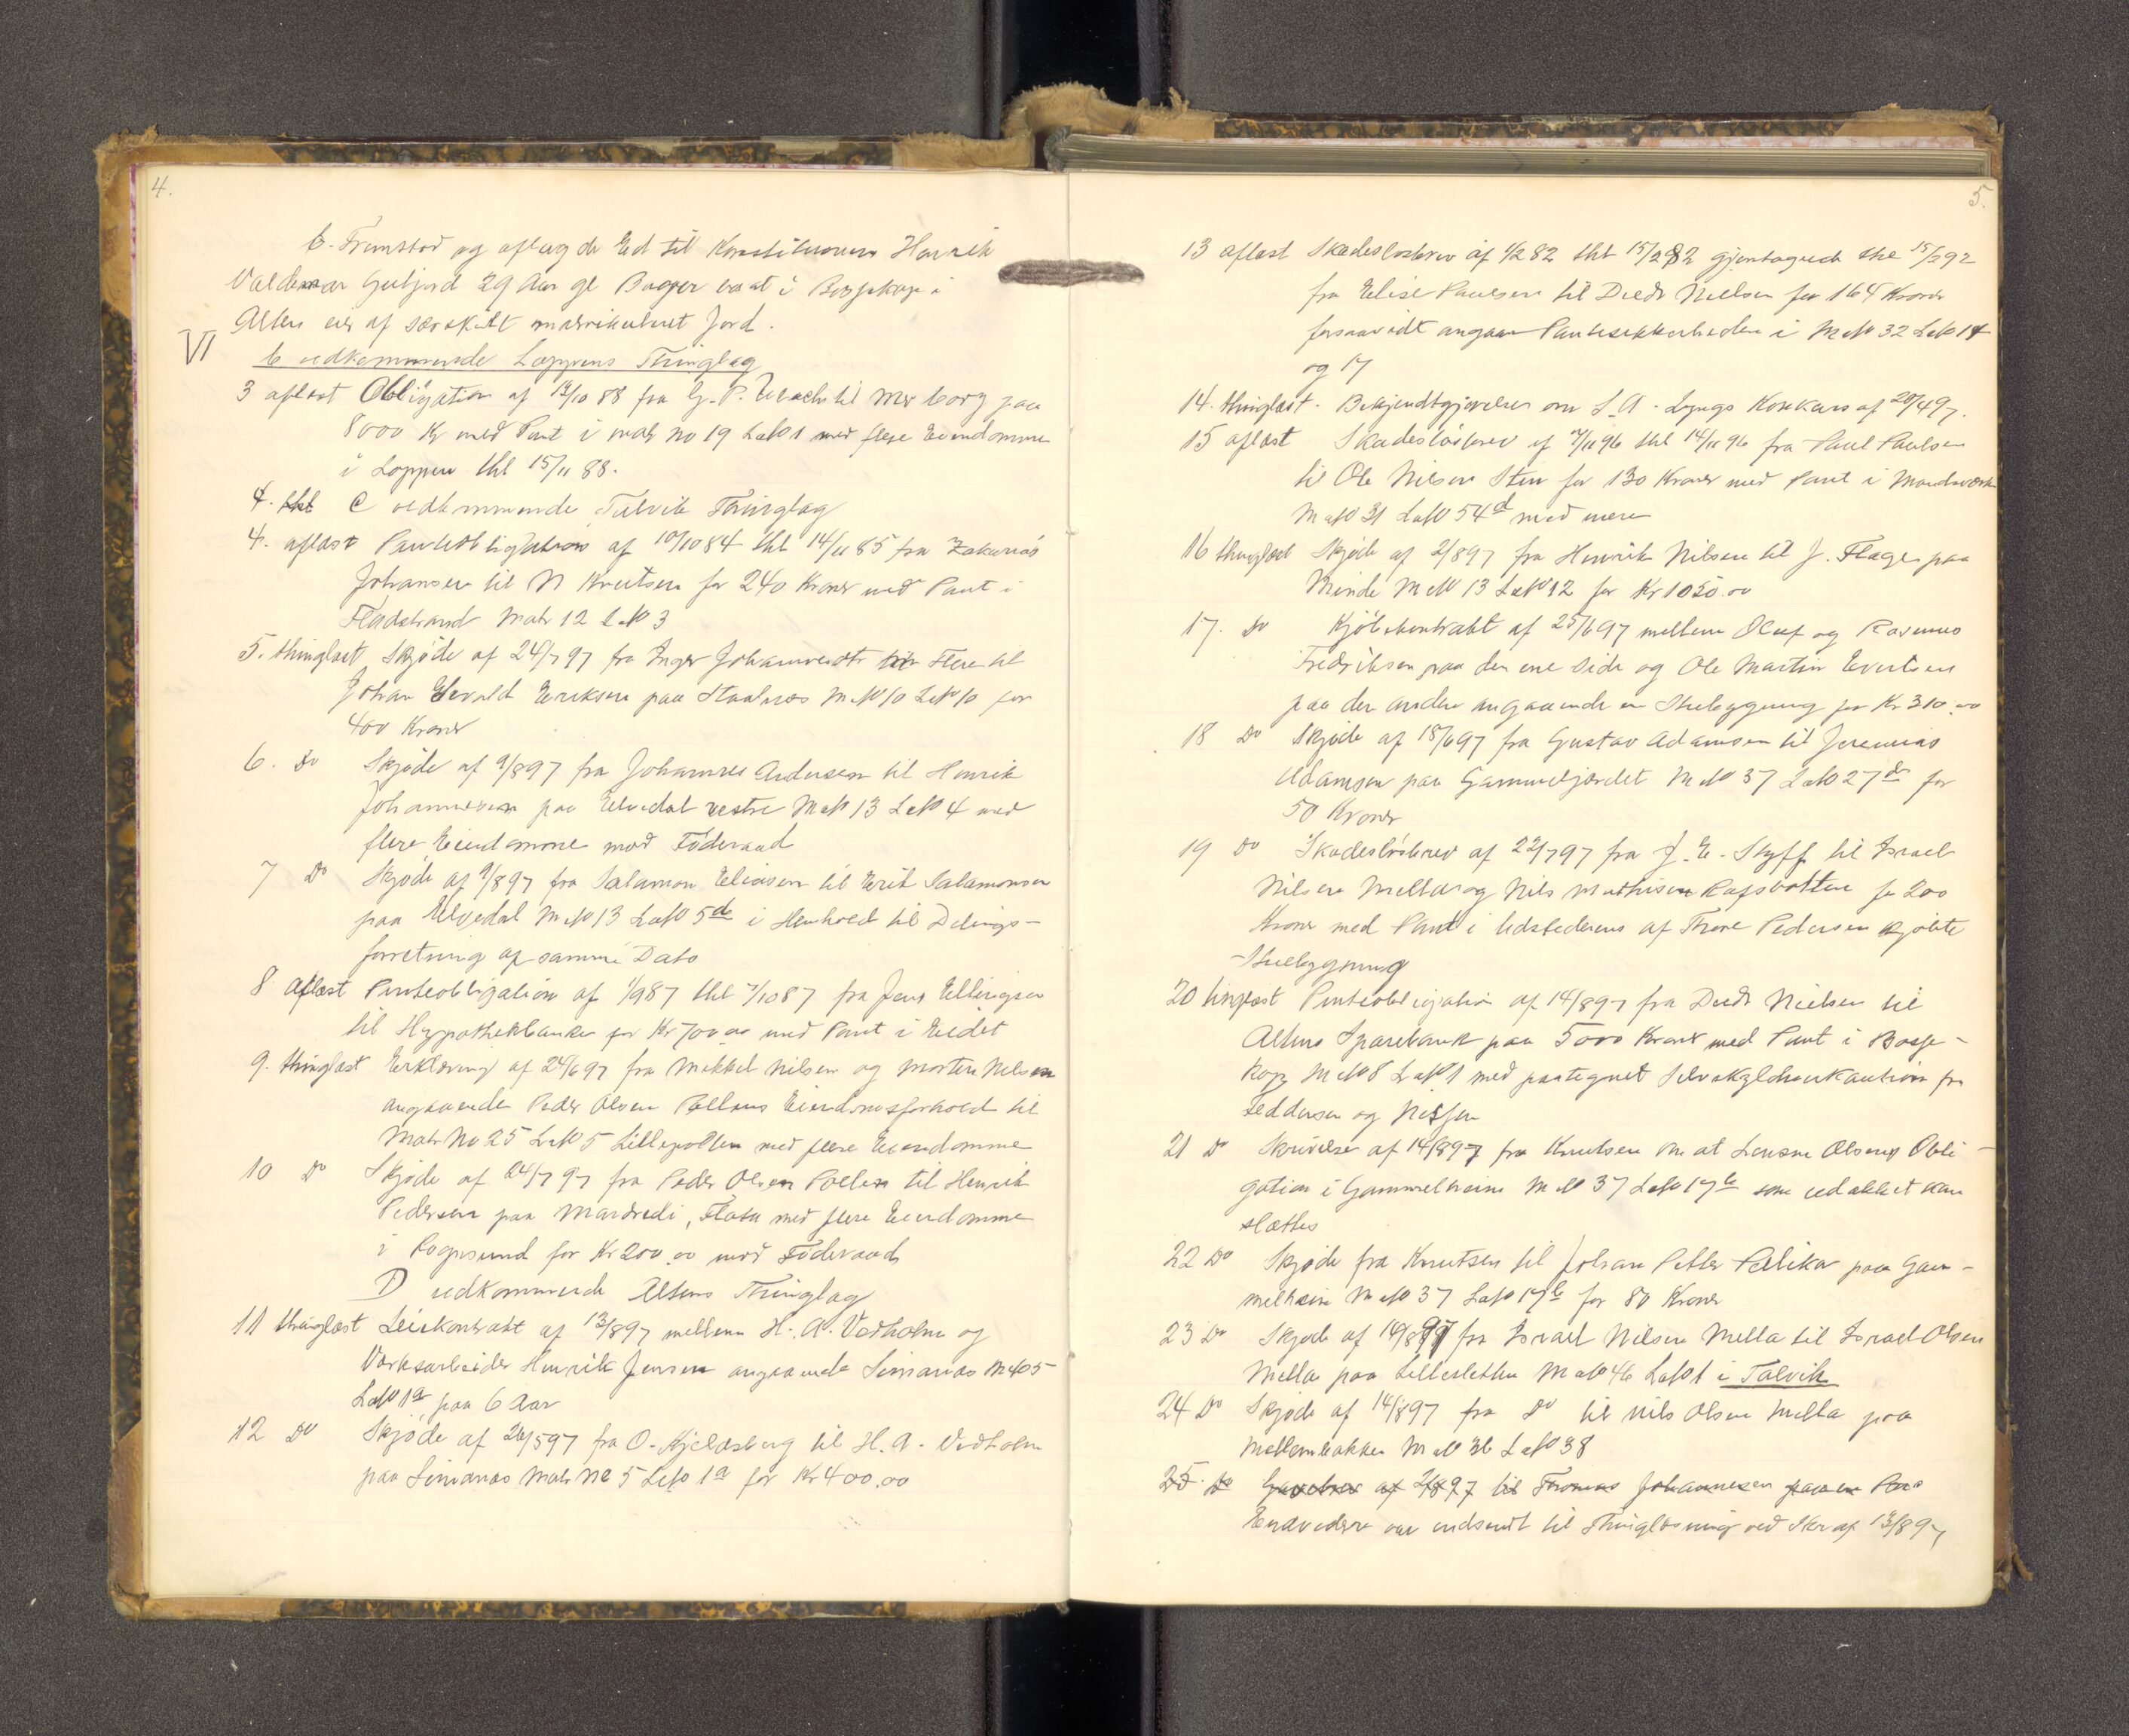 4.
6. Fremstod og aflagde Ed til Konstitutionen Henrik
Valdemar Guljord 29 Aar gl Bager boat i Bossekop i
Alten eier af særskilt matrikuleret Jord.
VI
b vedkommende Loppens Thinglag
3 aflæst Obligation af 12/10 88 fra G. P. til Mrs borg paa
8000 Kr med Pant i mat no 19 LNo 1 med flere Eiendomme
i Loppen thl 15/11 88.
4. thl C vedkommende Talvik Thinglag
4. aflæst Panteobligation af 10/10 84 thl 14/11 85 fra Zakarias
Johansen til N Knutsen for 240 Kroner med Pant i
Fladstrand Matr 12 LNo 3
5. thinglæst Skjøde af 24/7 97 fra Inger Johannesdtr Flere til
Johan Edvald Eriksen paa Staalnæs MNo 10 LNo 10 for
400 Kroner
6. Do Skjøde af 9/8 97 fra Johannes Andersen til Henrik
Johannesen paa Elvedal vestre MNo 13 LNo 4 med
flere Eiendomme mod Føderaad
7 Do Skjøde af 9/8 97 fra Salamon Eliasen til Erik Salamonsen
paa Elvedal MNo 13 LNo 5 d i Henhold til Delings-
forretning af samme Dato
8 aflæst Panteobligation af 1/9 87 thl 7/10 87 fra Jens Ellingsen
til Hypothekbanken for Kr 700.00 med Pant i Eidet
9. thinglæst Erklæring af 24/6 97 fra Mikkel Nilsen og Morten Nilsen
angaaende Peder Olsen Pollens Eiendomsforhold til
Matr No 25 LNo 5 Lillepollen med flere Eiendomme
10 Do Skjøde af 24/7 97 fra Peder Olsen Pollen til Henrik
Pedersen paa Mardredi, Flata med flere Eiendomme
i Rognsund for Kr 200.00 mod Føderaad
D vedkommende Altens Thinglag
11 thinglæst Leiekontrakt af 13/8 97 mellem H. A. Vedholm og
Værksarbeider Henrik Jensen angaaende Simanæs MNo 5
LNo 1a paa 6 Aar
12 Do Skjøde af 26/5 97 fra O. Kjeldsberg til H. A. Vedholm
paa Simanæs Matr No 5 LNo 1a for Kr 400.00
5.
13 aflæst Skadesløsbrev af 1/2 82 thl 15/2 82 gjentaget thl 15/2 92
fra Elise Paulsen til Diedr Nielsen for 164 Kroner
forsaavidt angaar Pantesikkerheden i MNo 32 LNo 14
og 17
14. thinglæst. Bekjendtgjørelse om L. A. Lyngs Konkurs af 20/4 97.
15 aflæst Skadesløsbrev af 7/11 96 thl 14/11 96 fra Paul Paulsen
til Ole Nilsen Sten for 130 Kroner med Pant i
MNo 31 LNo 54 d med mere
16 thinglæst Skjøde af 2/8 97 fra Henrik Nilsen til J. Flage paa
Minde MNo 13 LNo 12 for Kr 1050.00
17. Do Kjøbekontrakt af 25/6 97 mellem Oluf og Rasmus
Fredriksen paa den ene Side og Ole Martin Evertsen
paa den anden angaaende en Stuebygning for Kr 310.00
18 Do Skjøde af 18/6 97 fra Gustav Adamsen til Jeremias
Adamsen paa Gammeljordet MNo 37 LNo 27 for
50 Kroner
19 Do Skadesløsbrev af 22/7 97 fra J. E. Styff til Israel
Nilsen Mella og Nils Mathisen Rafsbotten for 200
Kroner med Pant i Udstederens af Thore Pedersen kjøbte
Stuebygning
20 tinglæst Panteobligation af 14/8 97 fra Diedr Nielsen til
Altens Sparebank paa 5000 Kroner med Pant i Bosse-
kop MNo 8 LNo 1 med paategnet Selvskyldnerkaution fra
Feddersen og Nissen
21 Do Skrivelse af 14/8 97 fra Knutsen om at Lensm Olsens Obli-
gation i Gammelheim MNo 37 LNo 17 b som udslukket kan
slættes
22 Do Skjøde fra Knutsen til Johan Petter Palika paa Gam-
melheim MNo 37 LNo 17 b for 80 Kroner
23 Do Skjøde af 14/8 97 fra Israel Nilsen Mella til Israel Olsen
Mella paa Lillesletten MNo 46 LNo 1 i Talvik
24 Do Skjøde af 14/8 97 fra Do til Nils Olsen Mella paa
Mellembakken MNo 36 LNo 38
25. Do Gavebrev af 2/8 97 til Thomas Johannesen paa en
Endvidere var indsendt til Thinglæsning ved Skr af 13/8 97